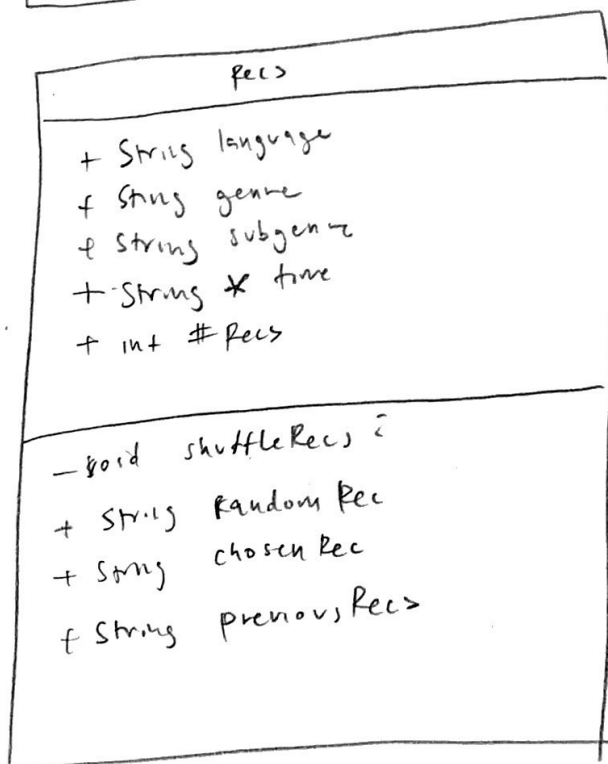 Recs
+ String language
+ String genre
+ String subgenre
+ String * time
+ int # Recs
- void shuffleRecs
+ String RandomRec
+ String chosenRec
+ String previousRecs